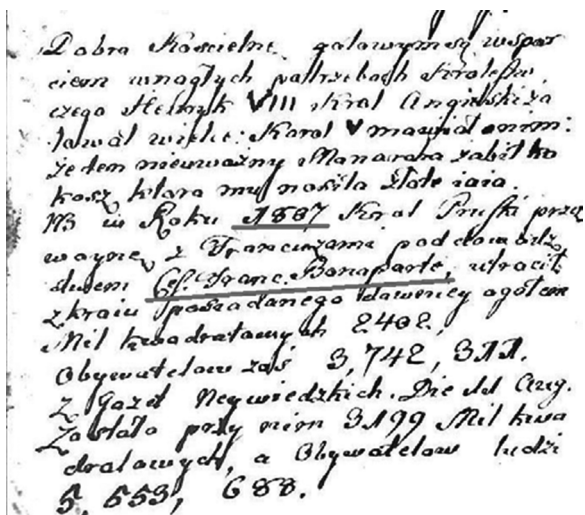 Dobra Kościelne gotowym są wspar
ciem wnagłych potrzebach Królestw,
czego Henryk VIII Krol Angielski ża
łował wielce: Karol V mawiał onim:
że ten nieuważny Monarcha zabił ko
kosz, ktora mu nosiła złote iaia.
NB w Roku 1807 Krol Pruski przez
woynę z Francuzami pod dowodz
stwem Ces. Franc. Bonaparte, utracił
z kraiu posiadanego dawniey ogółem
Mil kwadratowych 2402,
Obywatelow zaś 3,742, 311.
z Gazet Die 11 Aug.
Zostało przy nim 3199 Mil kwa
dratowych, a Obywatelow ludzi
5, 553, 688.